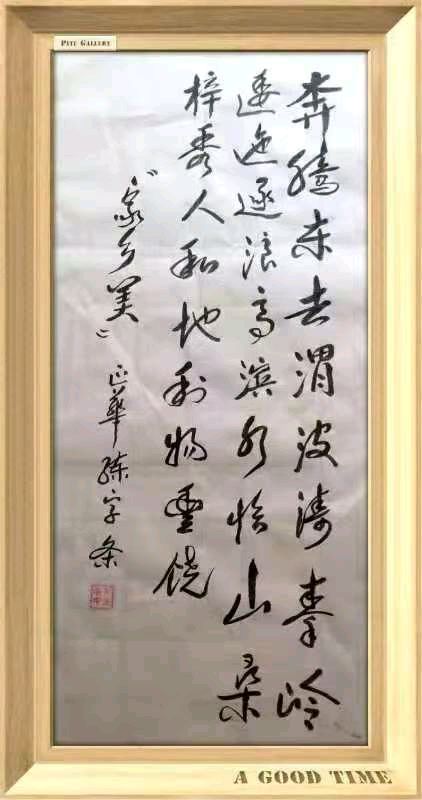 PITU GALLERY
奔腾东去渭波涛秦岭
逶迤逐浪高滨水怡山桑
梓秀人和地利物豐饶
“家乡美” 正華练字条
A GOOD TIME